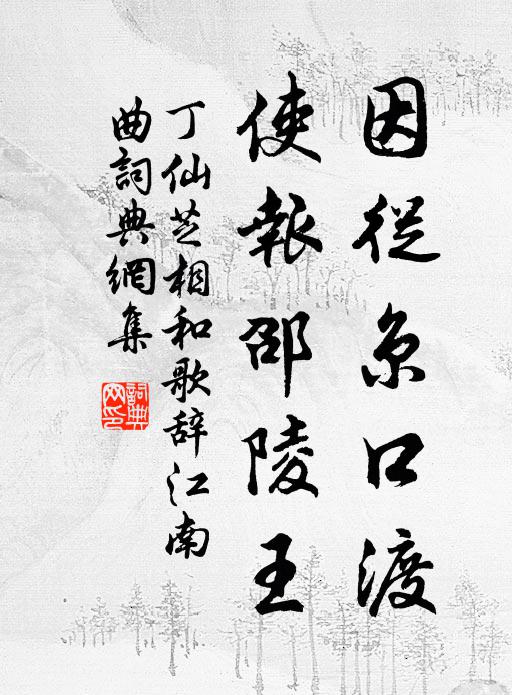 因從京口渡
使報邵陵王
丁仙芝相和歌辞江南
曲詞典網集
詞典
网印